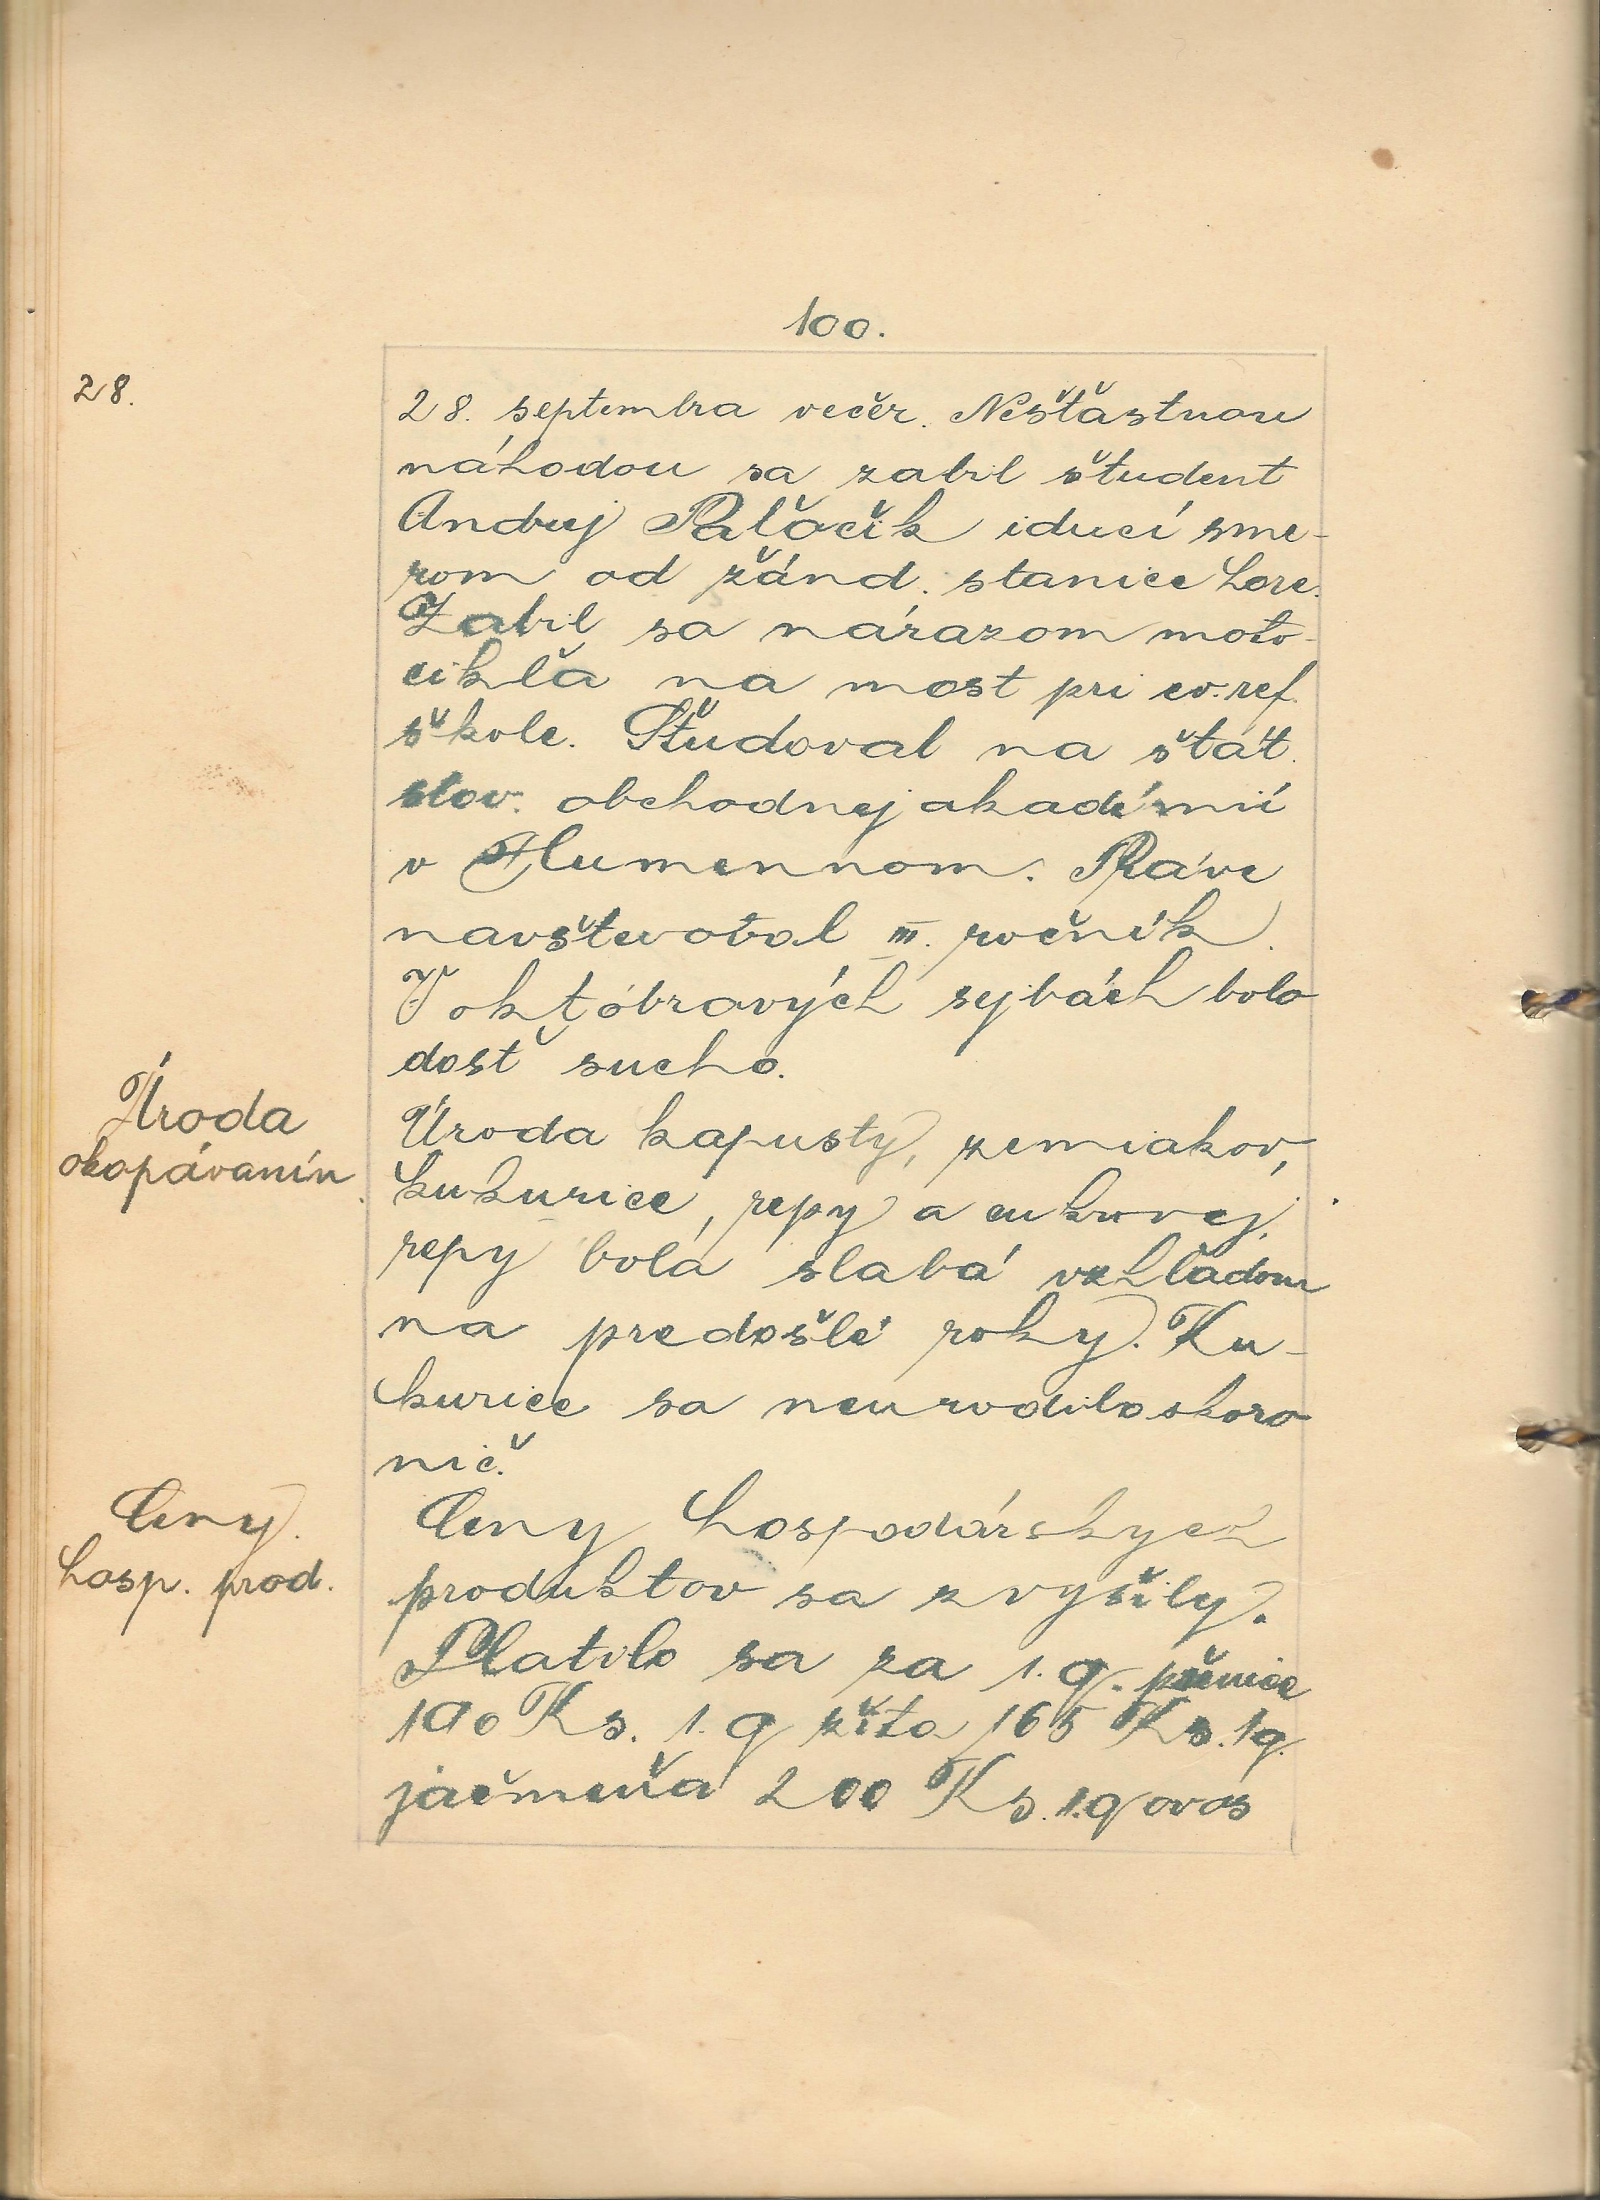 100.
28.
28. septembra večer. Nešťastnou
náhodou sa zabil študent
Andrej Paľočik iducí sme-
rom od žánd. stanice hore.
Zabil sa nárazom moto-
cikľa na most pri ev. ref.
škole. Študoval na štát.
slov. obchodnej akadémií
v Humennom. Práve
navštevoval III. ročník.
V októbrových sejbách bolo
dosť sucho.
Úroda
okopávanín.
Úroda kapusty, zemiakov,
kukurice, repy a cukrovej
repy bola slabá vzhľadom
na predošlé roky. Ku-
kurice sa neurodilo skoro
nič.
Ceny
hosp. prod.
Ceny hospodárskych
produktov sa zvyšily.
Platilo sa za 1. q. pšenice
190 Ks. 1. q žita 165 Ks. 1q.
jačmeňa 200 Ks. 1.q ovos